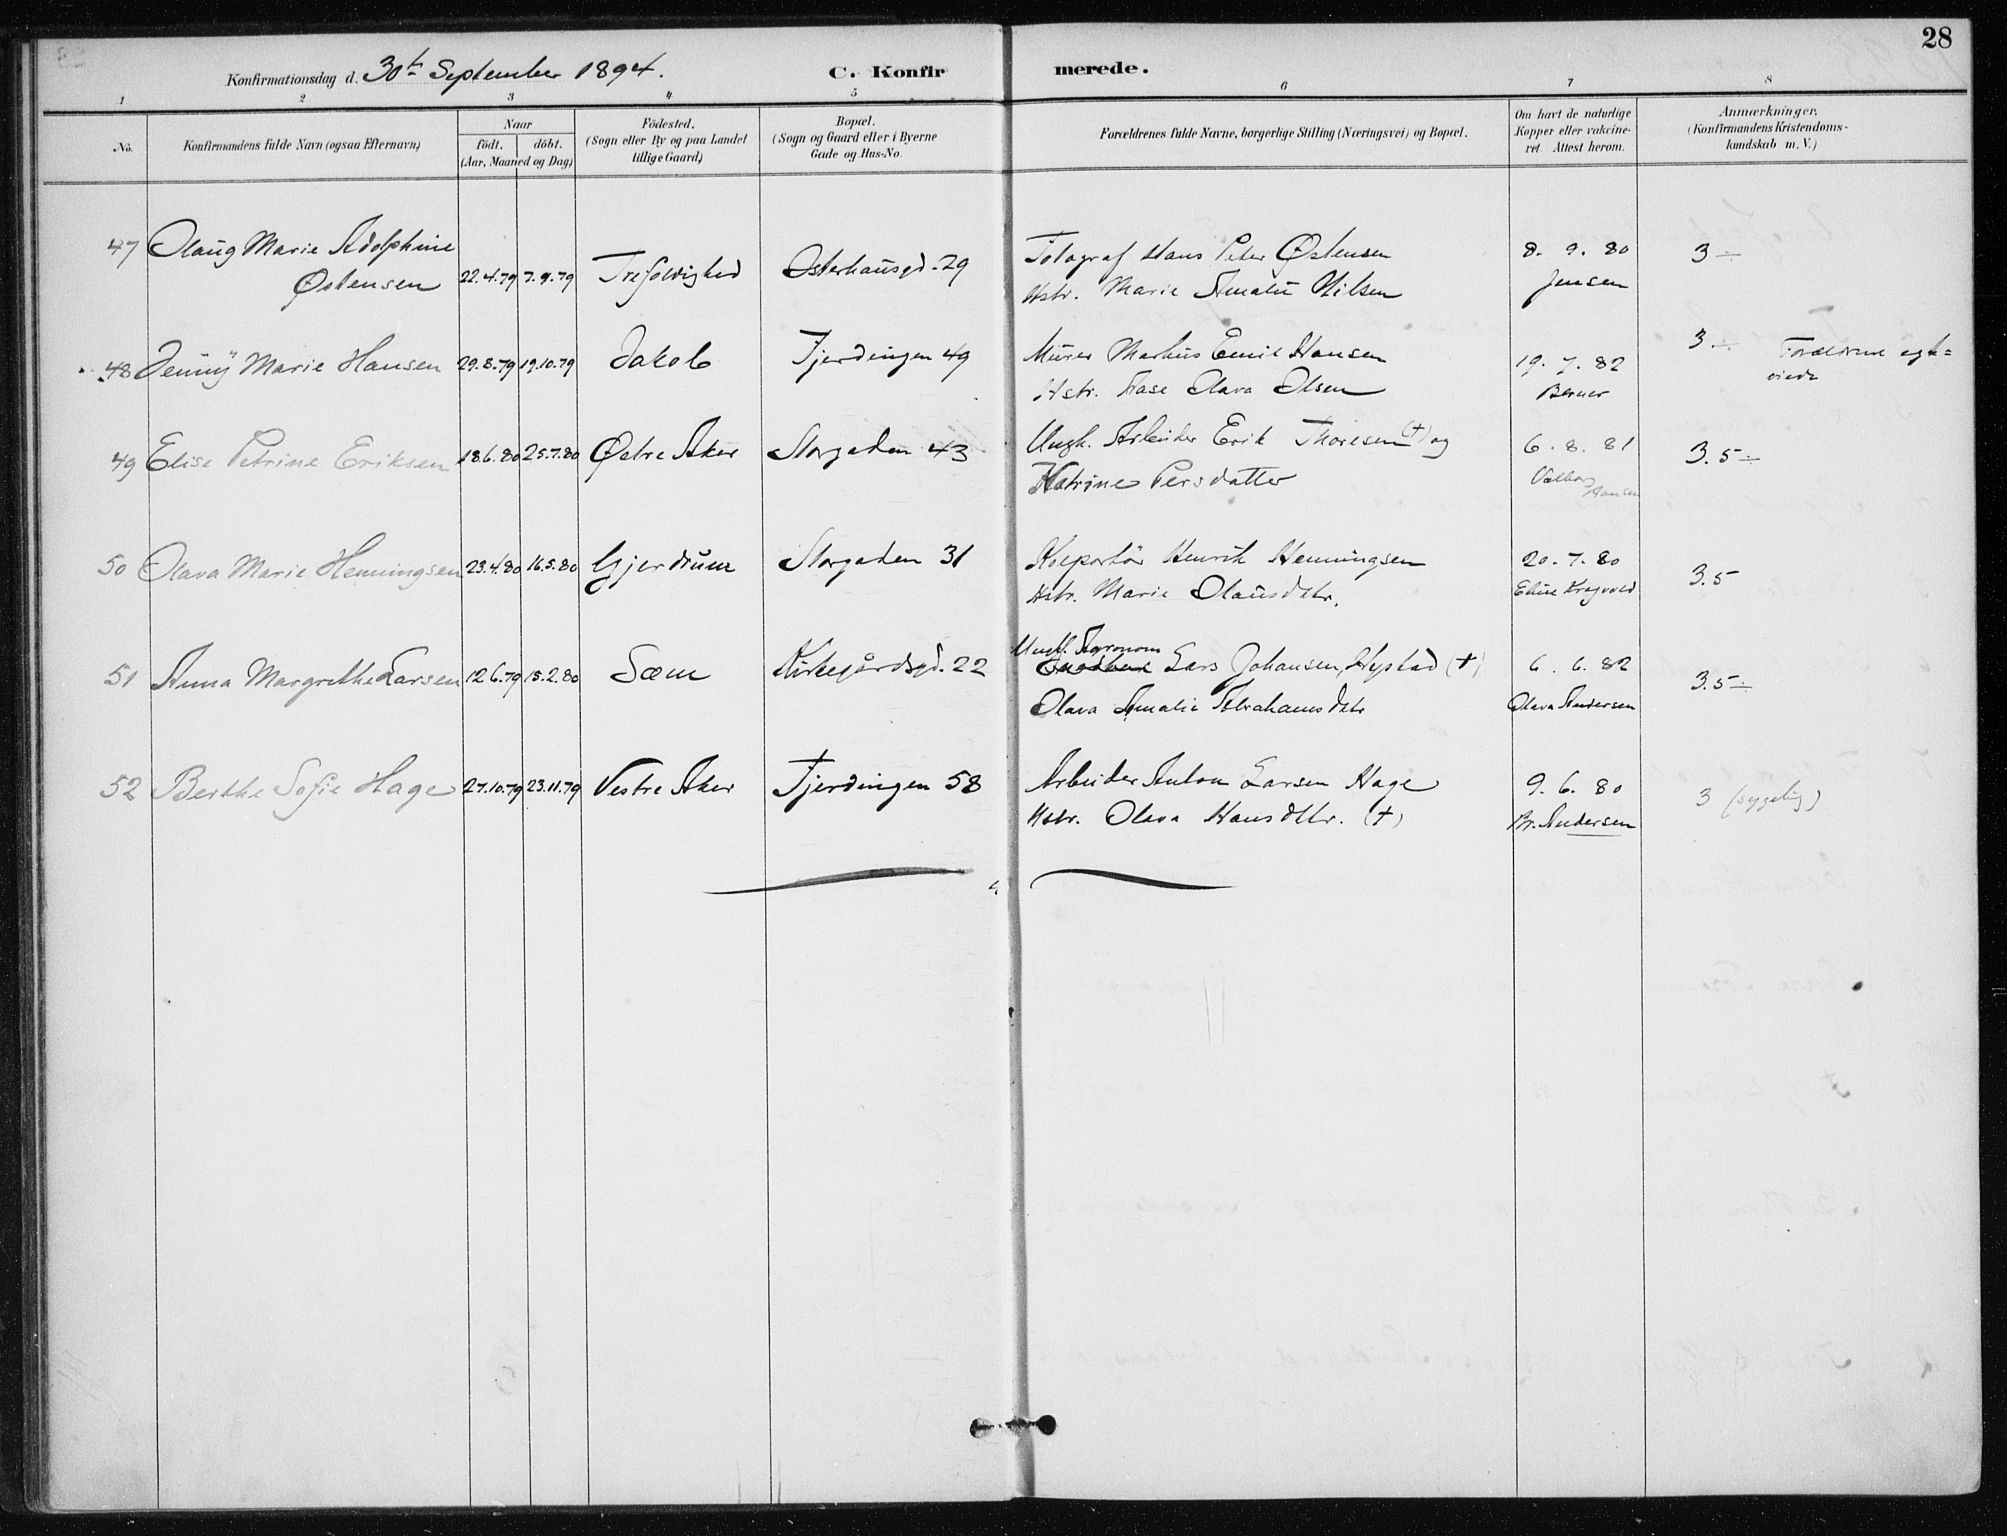 28
Konfirmationsdag d. 30te September 1894.
C. Konfirmerede.
1 2 3 4 5 6 7 8
No. Konfirmandens fulde Navn (ogsaa Efternavn) Naar født. døbt. (Aar, Maaned og Dag) Fødested. (Sogn eller By og paa Landet tillige Gaard) Bopæl. (Sogn og Gaard eller i Byerne Gade og Hus-No. Forældrenes fulde Navne, borgerlige Stilling (Næringsvei) og Bopæl. Om havt de naturlige Kopper eller vakcineret. Attest herom. Anmærkninger. (Konfirmandens Kristendomskundskab m. V.)
47 Olaug Marie Adolphine Fotograf Hans Peter Østensen 8. 9. 80 3 ÷
Østensen 22.4.79 7.9.79 Trefoldighed Osterhausgd. 29 Hstr. Marie Amalie Nilsen Jensen
48 Jenny Marie Hansen 29.8.79 19.10.79 Jakob Fjerdingen 49 Murer Markus Emil Hansen 19. 7. 82 3 ÷ Forældrene egte=
Hstr. Aase Olava Olsen Berner viede
49 Elise Petrine Eriksen 18.6.80 25.7.80 Østre Aker Storgaden 43 Ungk. Arbeider Erik Thoresen (†) og 6. 8. 81 3.5 ÷
Katrine Persdatter Valborg Hansen
50 Olava Marie Henningsen 23.4.80 16.5.80 Gjerdrum Storgaden 31 Kolportør Henrik Henningsen 20. 7. 80 3.5
Hstr. Marie Olausdtr. Eline Kragvold
51 Anna Margrethe Larsen 12.6.79 15.2.80 Sæm Kirkegårdsgd. 22 Ungk. Agronom Lars Johansen, Hystad (†) 6. 6. 82 3.5 ÷
Olava Amalie Abrahamsdtr Olava Andersen
52 Berthe Sofie Hage 27.10.79 23.11.79 Vestre Aker Fjerdingen 58 Arbeider Anton Larsen Hage 9. 6. 80 3 (sygelig)
Hstr. Olava Hansdttr. (†) Br. Andersen